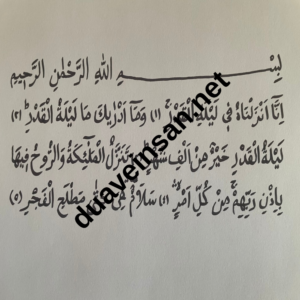 بِسْمِ اللهِ الرَّحْمٰنِ الرَّحِيمِ
اِنَّٓا اَنْزَلْنَاهُ فِي لَيْلَةِ الْقَدْرِ (١) وَمَٓا اَدْرٰيكَ مَا لَيْلَةُ الْقَدْرِ (٢)
لَيْلَةُ الْقَدْرِ خَيْرٌ مِنْ اَلْفِ شَهْرٍ تَنَزَّلُ الْمَلٰٓئِكَةُ وَالرُّوحُ فِيهَا
بِاِذْنِ رَبِّهِمْ مِنْ كُلِّ اَمْرٍ (٤) سَلَامٌ هِيَ مَطْلَعِ الْفَجْرِ (٥)
duaveinsan.net